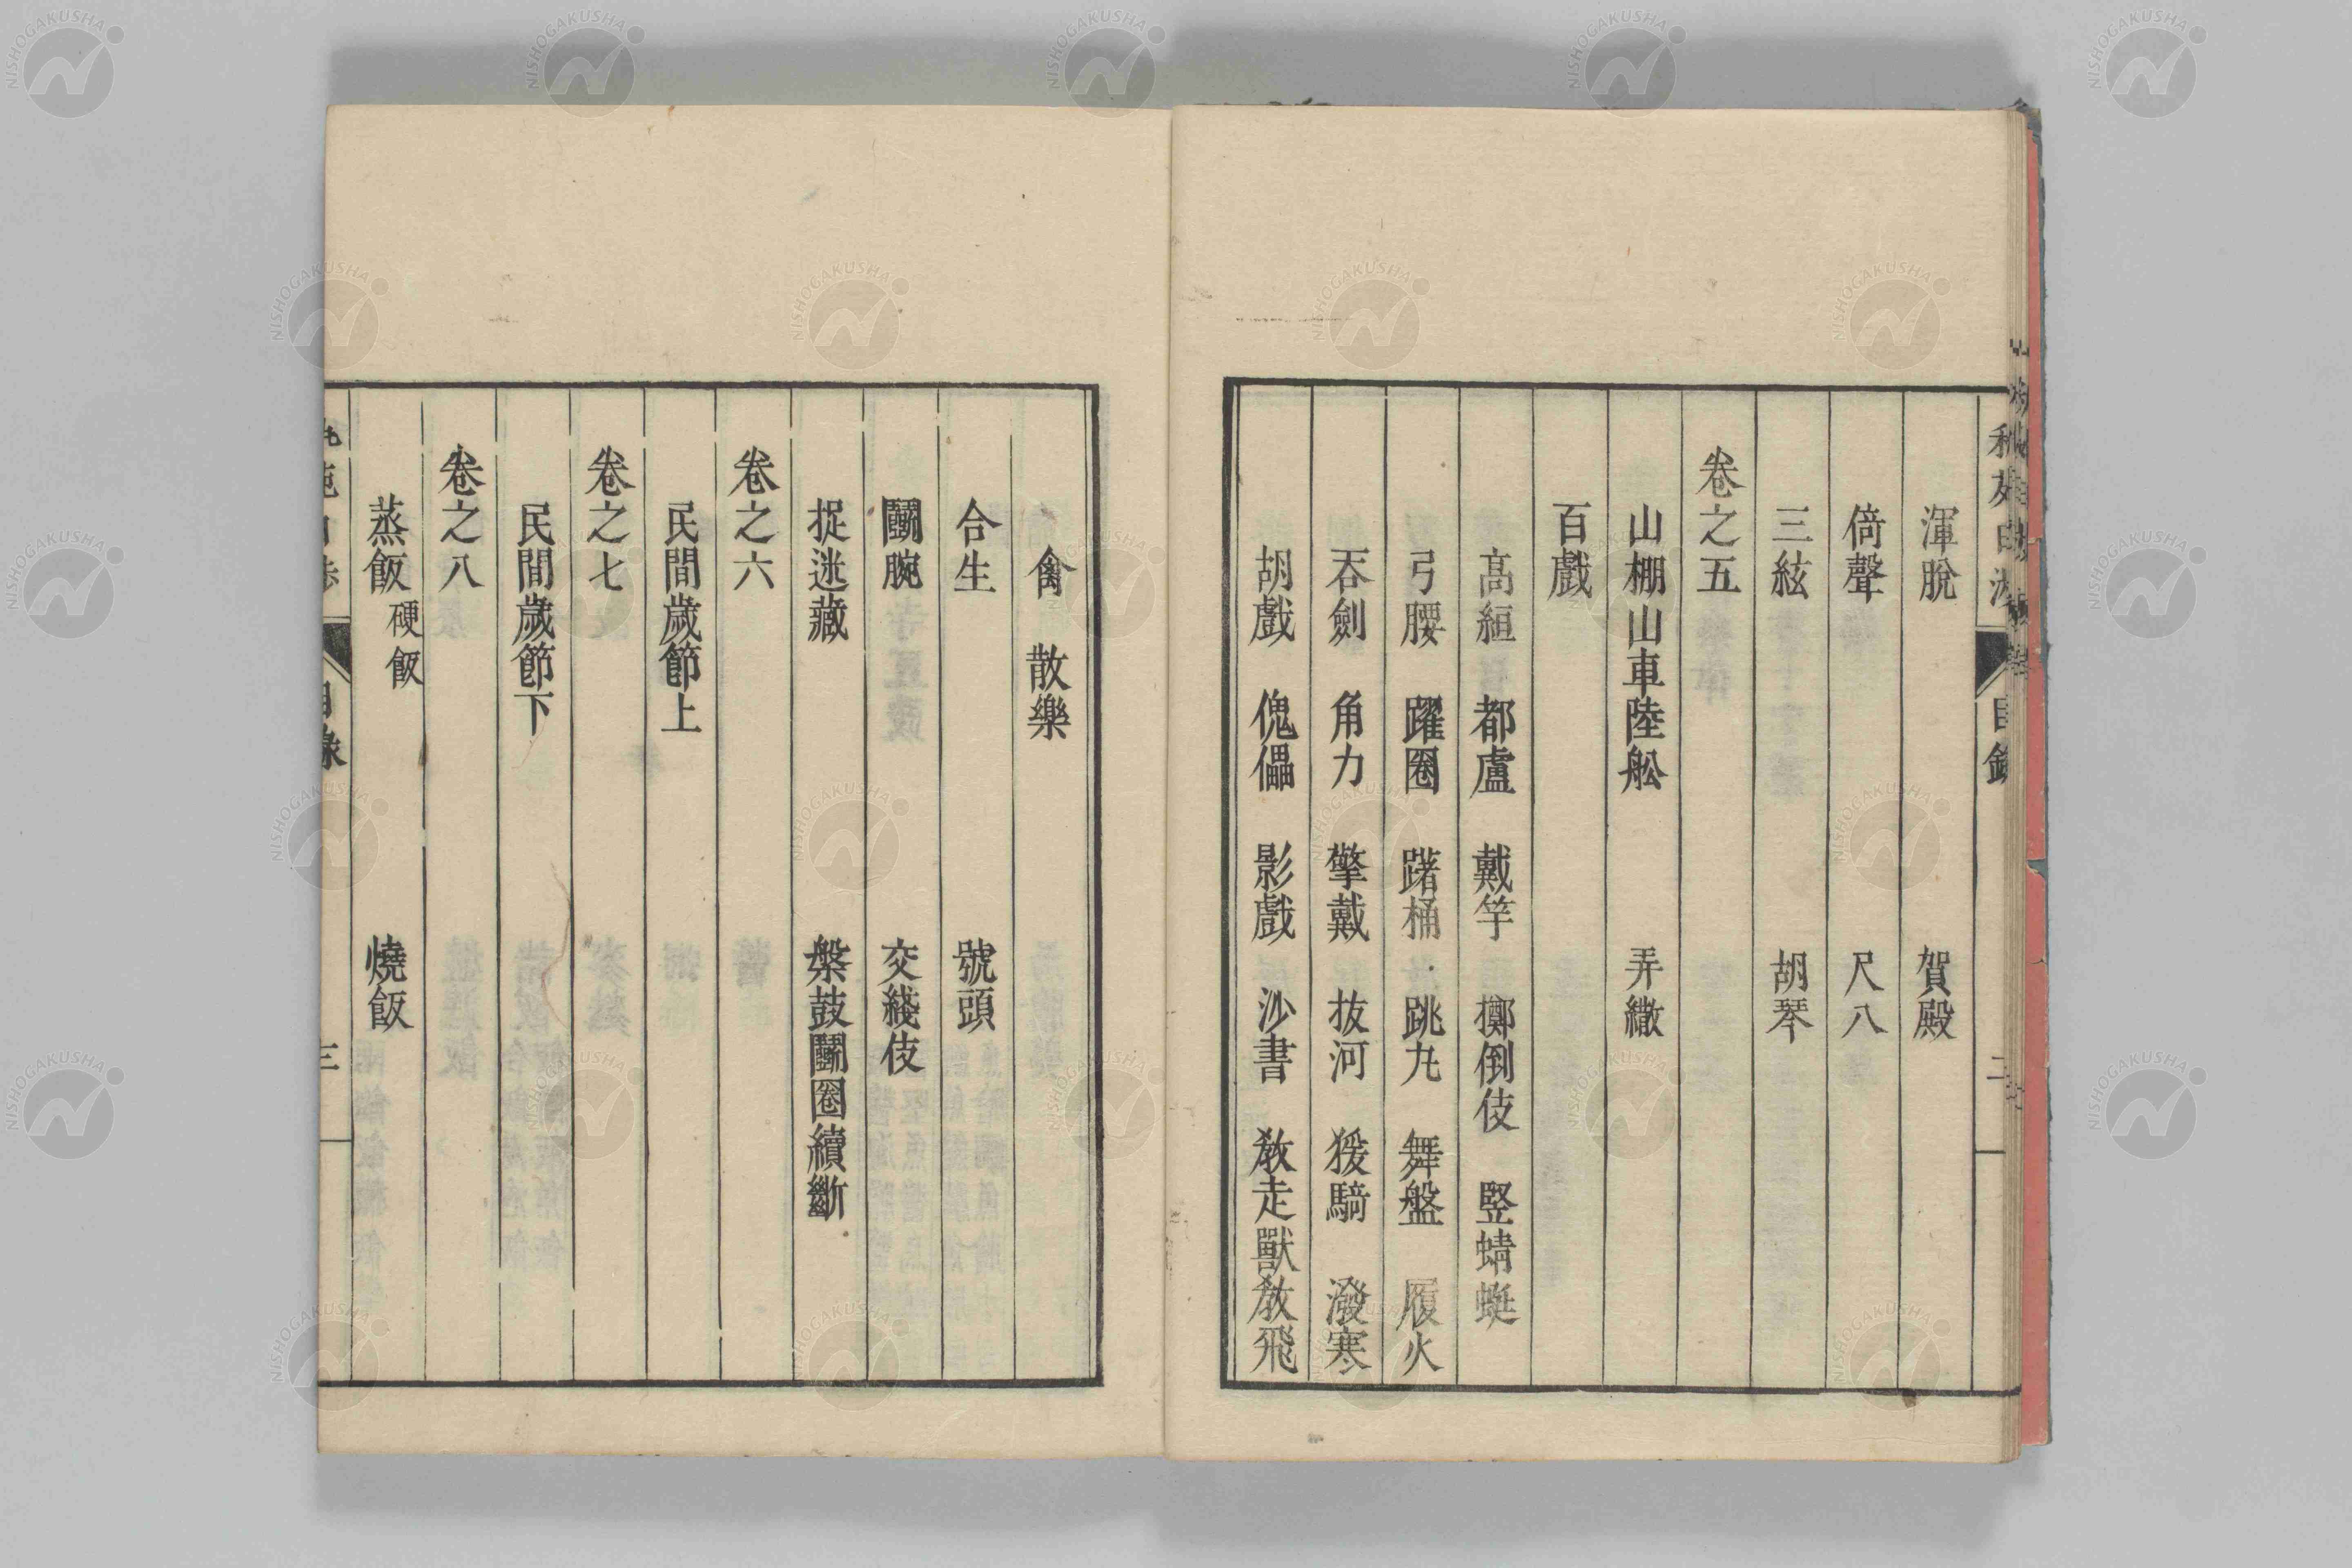 渾脫　賀殿
倚聲　尺八
三絃　胡琴
卷之五
山棚山車陸舩　弄繖
百戲
高絙　都盧　戴竿　擲倒伎　竪蜻蜓
弓腰　躍圈　踏桶　跳丸　舞盤　履火
吞劍　角力　擎戴　拔河　猨騎　潑寒
胡戲　傀儡　影戲　沙書　敎走獸敎飛
目錄
禽　散樂
合生　號頭
鬭腕　交綫伎
捉迷藏　槃鼓鬭圈續斷
卷之六
民間歲節上
卷之七
民間歲節下
卷之八
蒸飯 硬飯　燒飯
目錄
三
NISHOGAKUSHA